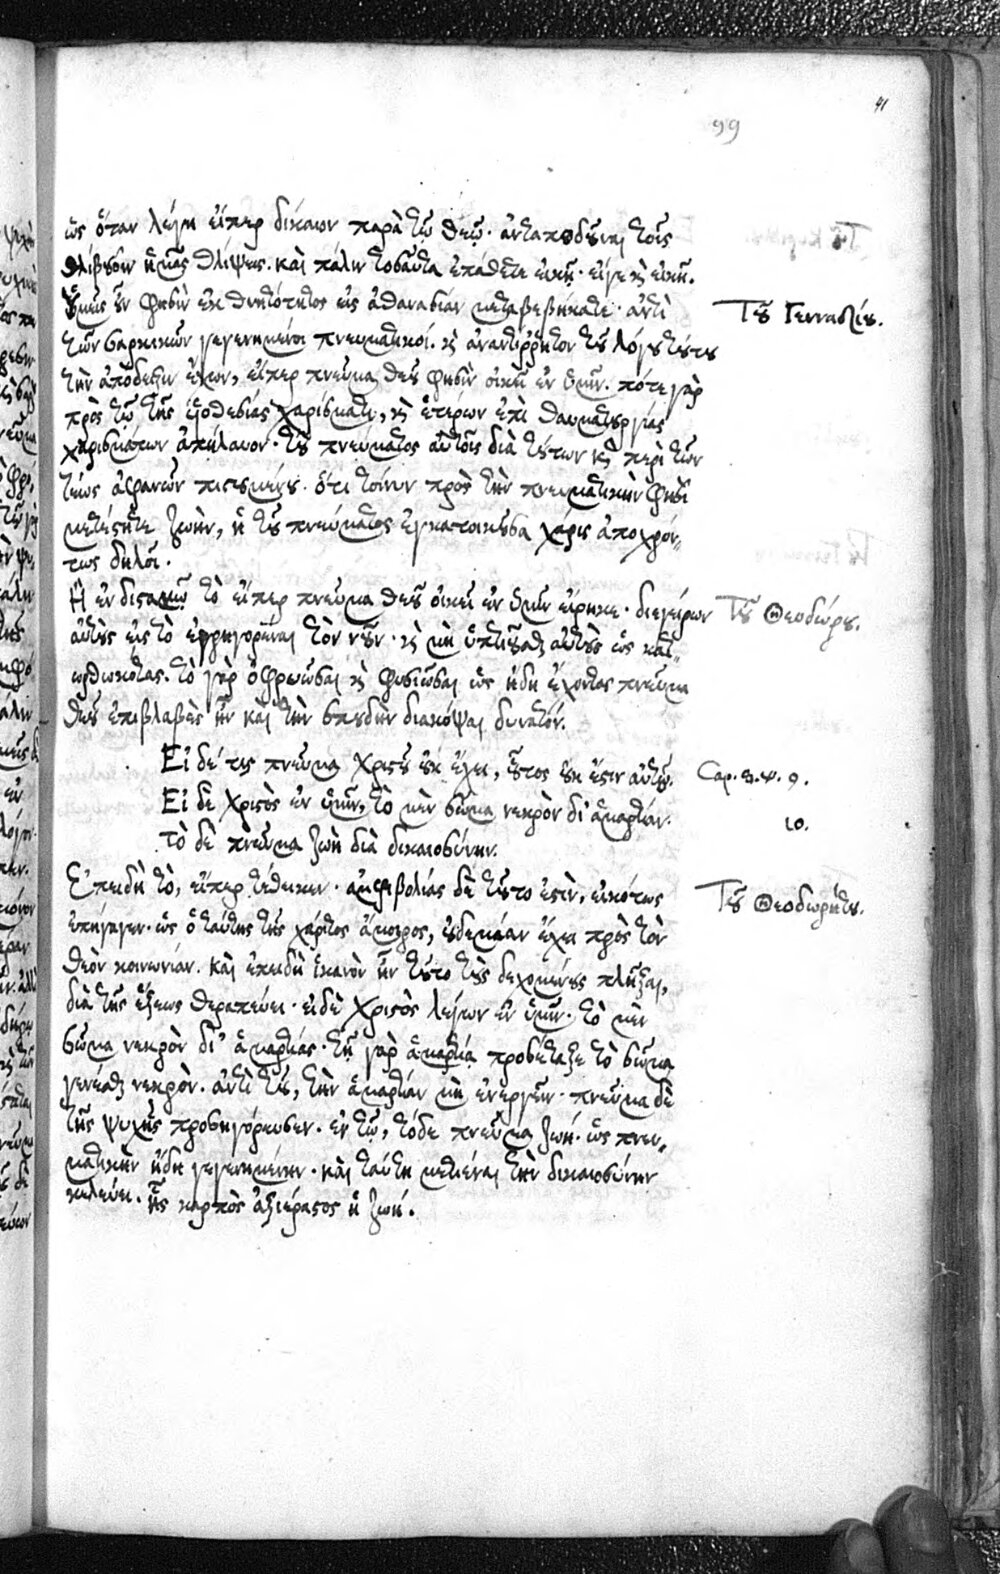 41
99
ὡς ὅταν λέγῃ εἴπερ δίκαιον παρὰ τῷ θεῷ· ἀνταποδοῦναι τοῖς
θλίβουσιν ἡμᾶς θλίψιν. καὶ πάλιν τοσαῦτα ἐπάθετε εἰκῇ· εἴγε κ εἰκῇ.
Ὑμεῖς οὖν φησὶν ἐκ θνητότητος εἰς ἀθανασίαν μεταβεβήκατε· ἀντὶ
Τοῦ Γενναδίου.
τῶν σαρκικῶν γεγενημένοι πνευματικοί. κ ἀναντίρρητον τοῦ λόγου τούτου
τὴν ἀπόδειξιν ἔχων, εἴπερ πνεῦμα θεοῦ φησὶν οἰκεῖ ἐν ὑμῖν. πότε γὰρ
πρὸς τῷ τῆς υἱοθεσίας χαρίσματι, κ ἑτέρων ἐπὶ θαυματουργίας
χαρισμάτων ἀπήλαυον· τοῦ πνεύματος αὐτοῖς διὰ τούτων κ περὶ τῶν
τέως ἀφανῶν πιστουμένου. ὅτι τοίνυν πρὸς τὴν πνευματικὴν φησὶ
μετέστητε ζωὴν, ἡ τοῦ πνεύματος ἐγκατοικοῦσα χάρις ἀποχρόν„
τως δηλοῖ.
Ἢ ἐν τὸ εἴπερ πνεῦμα θεοῦ οἰκεῖ ἐν ὑμῖν εἴρηκε· διεγείρων
Τοῦ Θεοδώρου.
αὐτοὺς εἰς τὸ ἐγρηγορέναι τὸν νοῦν· κ μὴ ὑπτιοῦσθαι αὐτοὺς ὡς κατ„
ωρθωκότας. τὸ γὰρ ὀφρυῶσαι κ φυσιῶσαι ὡς ἤδη ἔχοντας πνεῦμα
θεοῦ ἐπιβλαβὲς ἦν καὶ τὴν σπουδὴν διακόψαι δυνατόν.
Εἰ δέ τις πνεῦμα Χριστοῦ οὐκ ἔχει, οὗτος οὐκ ἔστιν αὐτοῦ.
9.
Εἰ δὲ Χριστὸς ἐν ὑμῖν, τὸ μὲν σῶμα νεκρὸν δι' ἁμαρτίαν.
10.
Τὸ δὲ πνεῦμα ζωὴ διὰ δικαιοσύνην.
Ἐπειδὴ τὸ, εἴπερ τέθηκεν· ἀμφιβολίας δὲ τοῦτο ἐστὶν, εἰκότως
Τοῦ Θεοδωρήτου.
ἐπήγαγεν. ὡς ὁ ταύτης τῆς χάριτος ἄμοιρος, οὐδεμίαν ἔχει πρὸς τὸν
θεὸν κοινωνίαν. καὶ ἐπειδὴ ἱκανὸν ἦν τοῦτο τοὺς δεχομένους πλῆξαι,
διὰ τῆς ἑξῆς θεραπεύει· εἰ δὲ Χριστὸς λέγων ἐν ὑμῖν· τὸ μὲν
σῶμα νεκρὸν δι' ἁμαρτίας· τῇ γὰρ ἁμαρτίᾳ προσέταξε τὸ σῶμα
γενέσθαι νεκρὸν. ἀντὶ τοῦ, τὴν ἁμαρτίαν μὴ ἐνεργεῖν· πνεῦμα δὲ
τῆς ψυχῆς προσηγόρευσεν. ἐν τῷ, τό δε πνεῦμα ζωή. ὡς πνευ„
ματικὴν ἤδη γεγενημένην. καὶ ταύτῃ μετιέναι τὴν δικαιοσύνην
κελεύει. ἧς καρπὸς ἀξιέραστος ἡ ζωή.